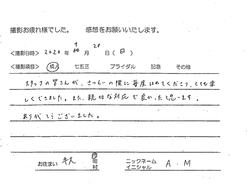 撮影お疲れ様でした。 感想をお願いいたします。
<撮影日時> 2020年 9月 20 (日)
<撮影項目> 成人 七五三 ブライダル 記念 その他
スタッフの皆さんが、さっしーの様に毎度ほめてくださり、とても楽
しくできました。また、親切な対応で良かったと思います。
ありがとうございました。
お住まい 市 町 村 ニックネーム イニシャル A . M